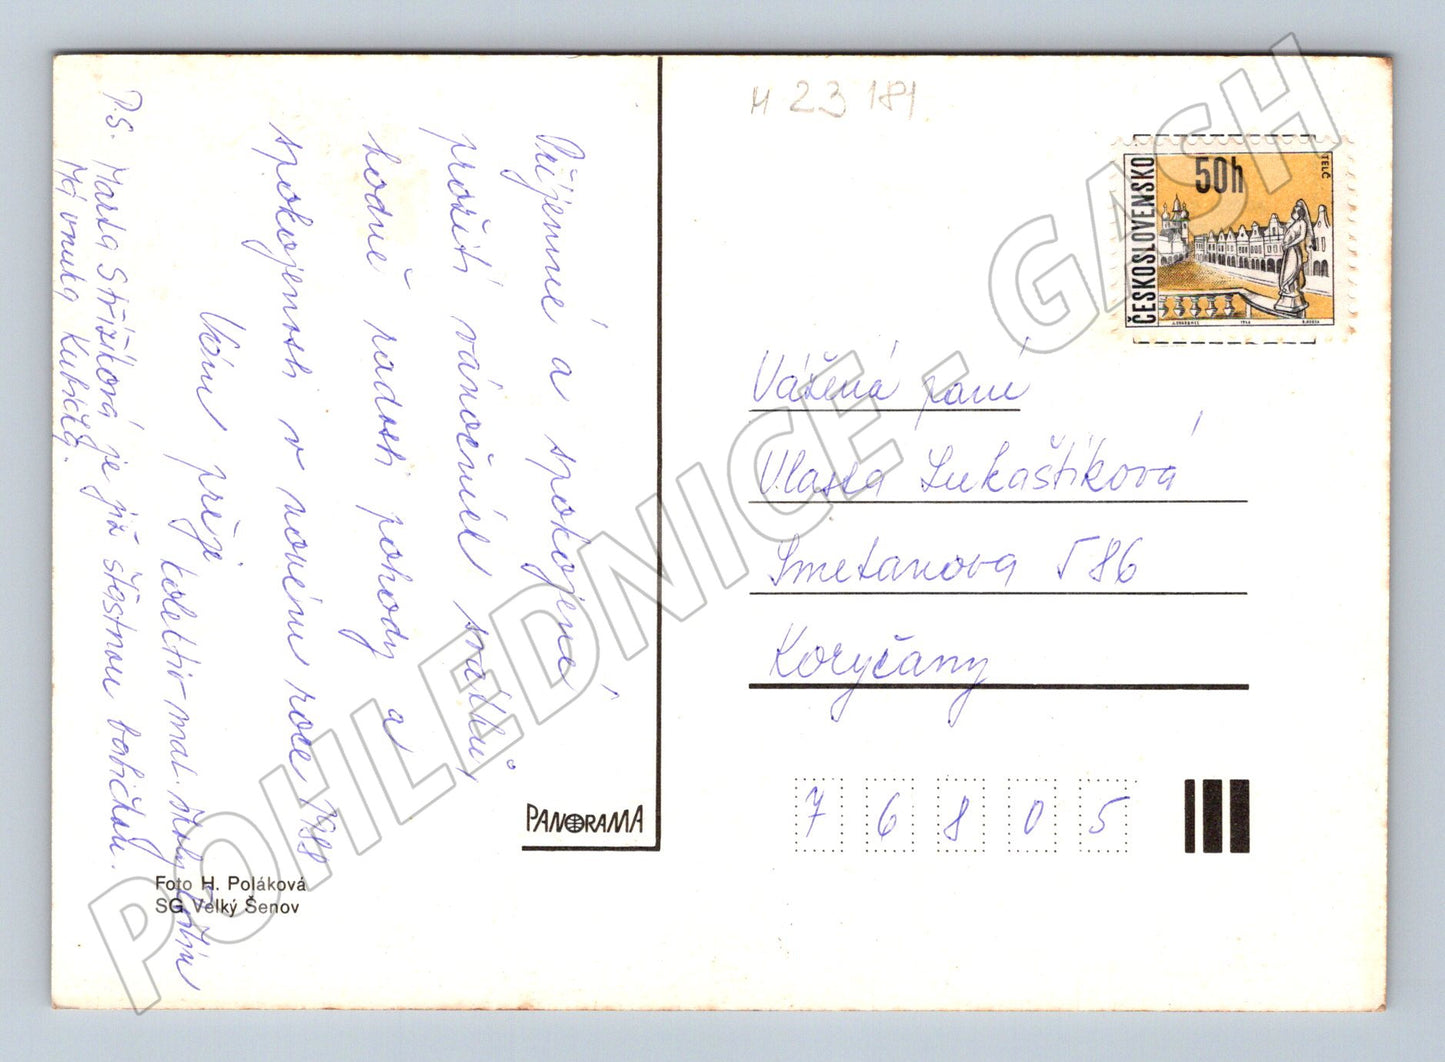 Příjemné a spokojené
prožití vánočních svátků,
hodně radosti pohody a
spokojenosti v novém roce 1988
Vám přeje
kolektiv mat. školy
P.S. Marta Střížiková je již šťastnou babičkou.
Má vnuka Kubíčka.
PANORAMA
Foto H. Poláková
SG Velký Šenov
M 23 181
ČESKOSLOVENSKO
50h
TELČ
Vážená paní
Vlasta Lukaštíková
Smetanova 586
Koryčany
76805
POHLEDNICE - GASH